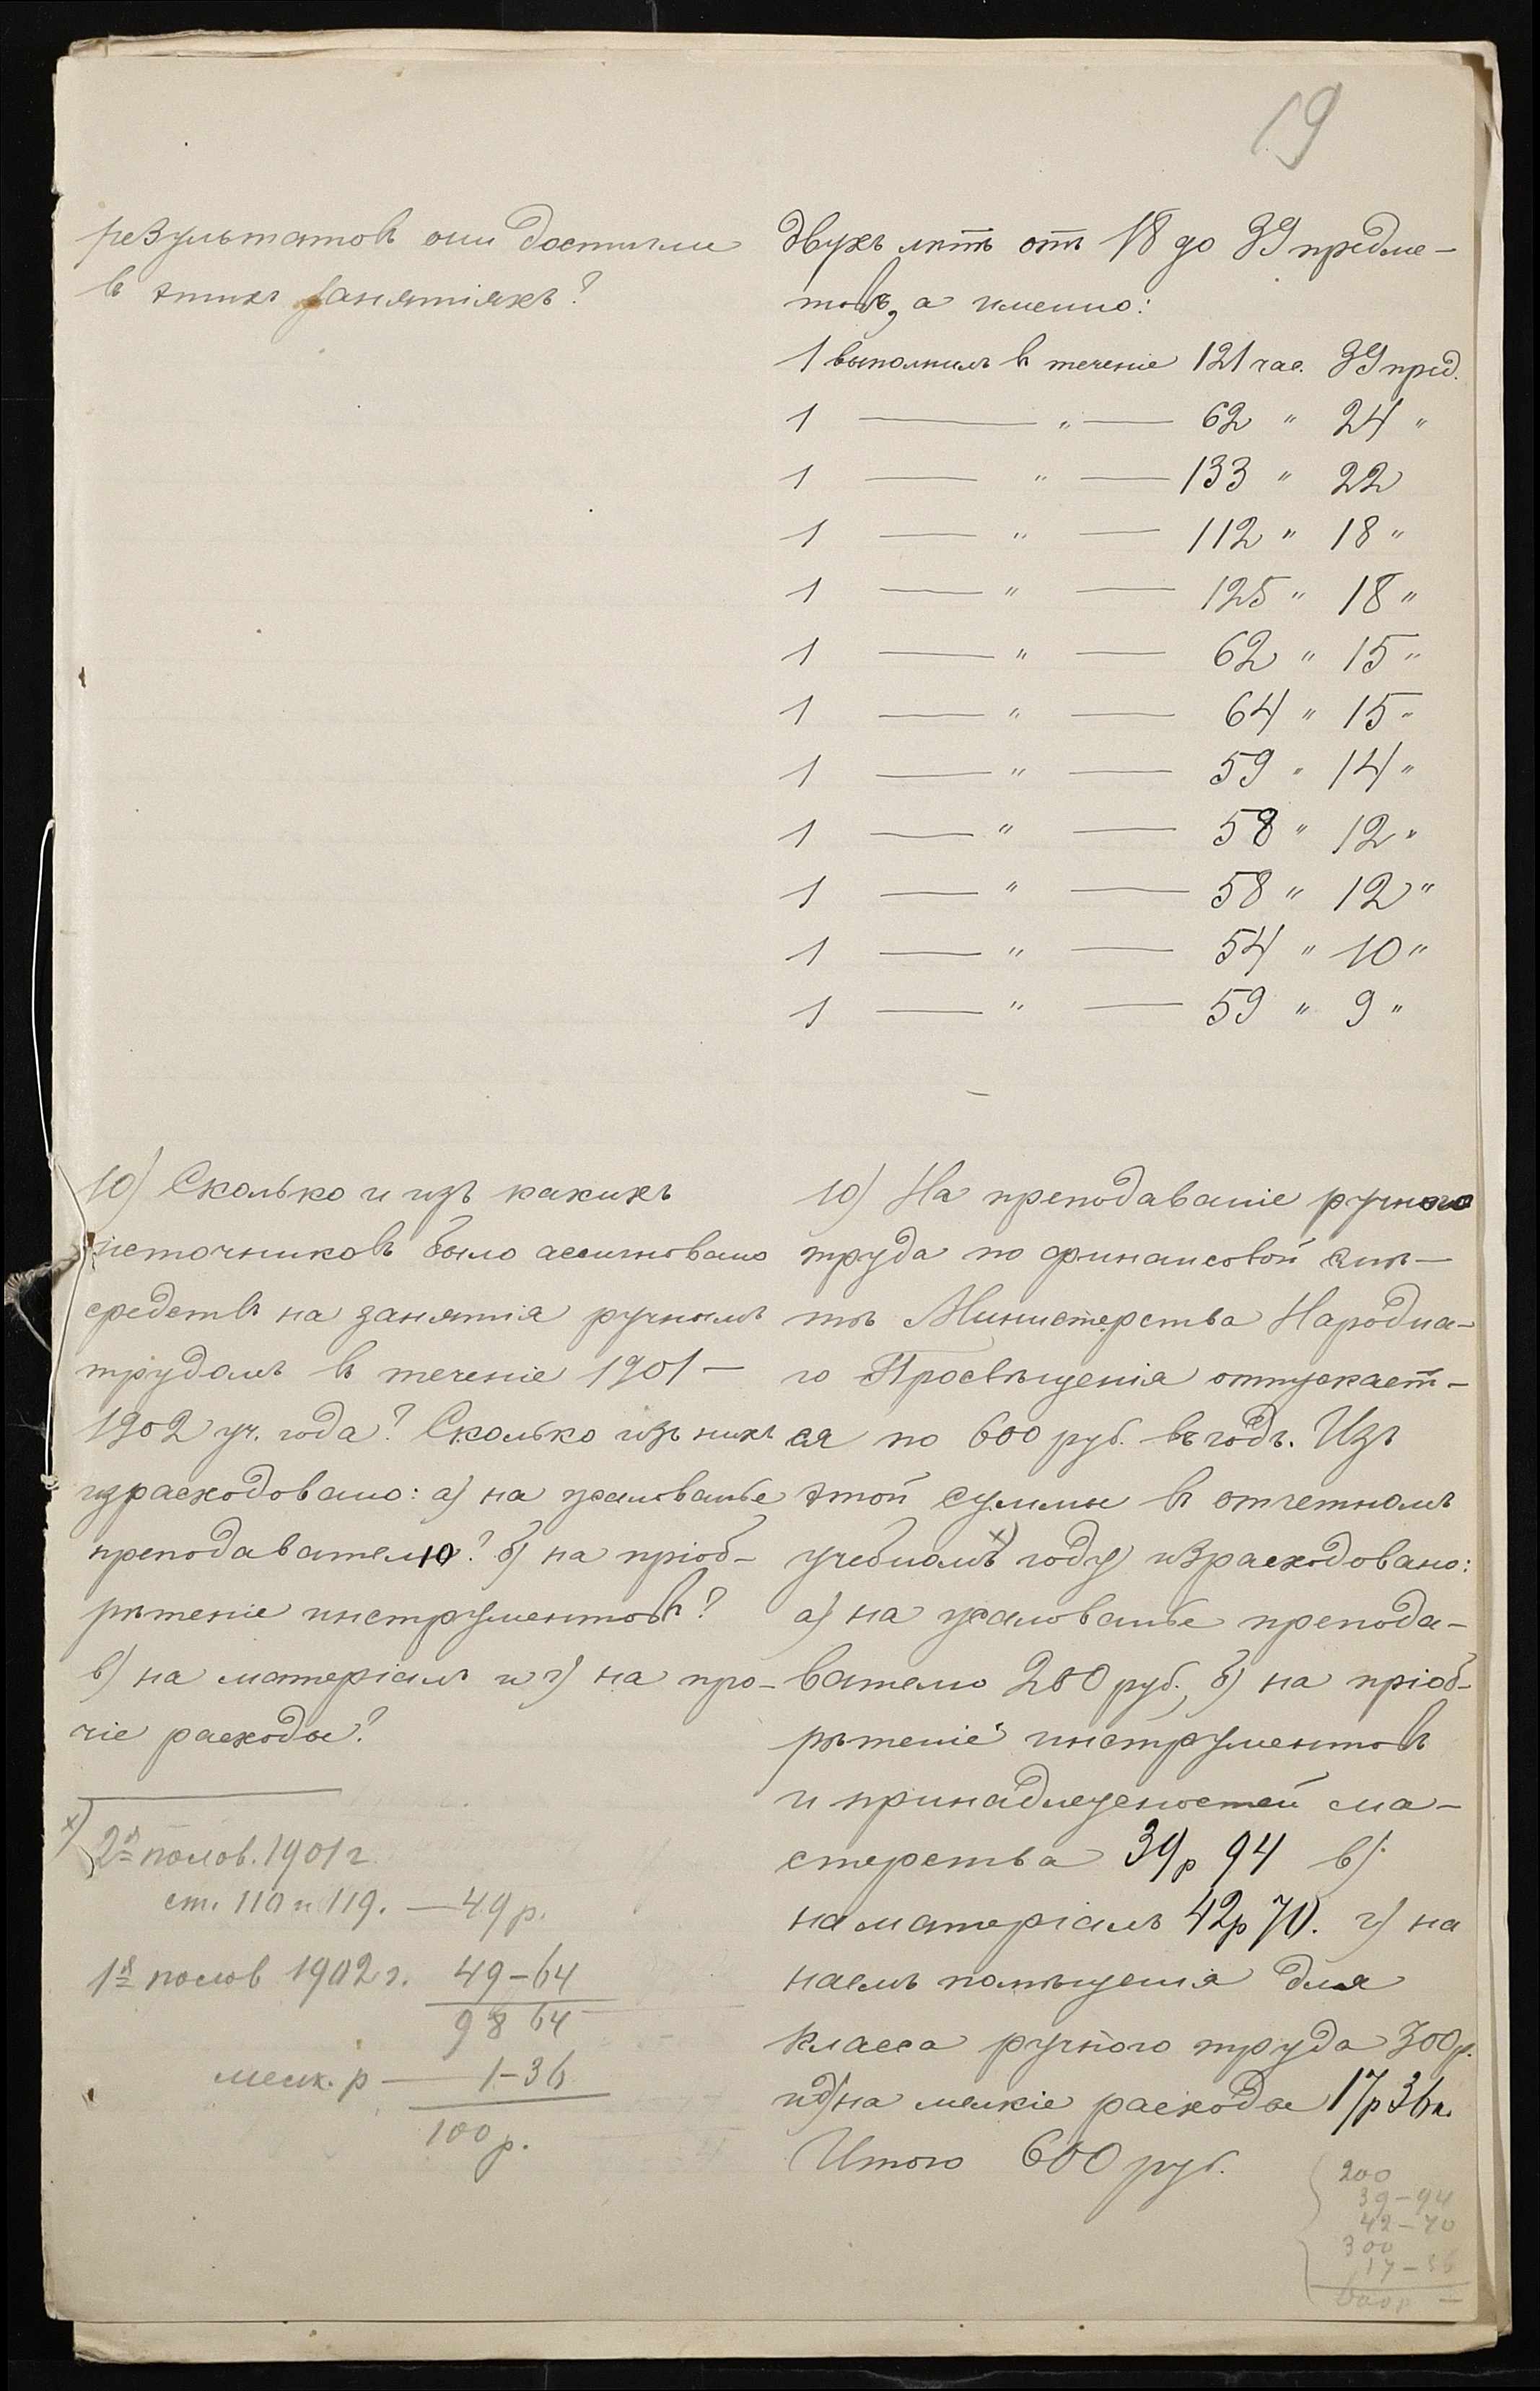 19
результатовъ они достигли
въ этихъ занятіяхъ?
двухъ лѣтъ отъ 18 до 39 предме-
товъ, а именно:
1 выполнилъ въ теченіе 121 час. 39 пред.
1 — " — 62 " 24 "
1 — " — 133 " 22
1 — " — 112 " 18 "
1 — " — 125 " 18 "
1 — " — 62 " 15 "
1 — " — 64 " 15 "
1 — " — 59 " 14 "
1 — " — 58 " 12 "
1 — " — 58 " 12 "
1 — " — 54 " 10 "
1 — " — 59 " 9 "
10) Сколько и изъ какихъ
источниковъ было ассигновано
средствъ на занятія ручнымъ
трудомъ въ теченіе 1901—
1902 уч. года? Сколько изъ нихъ
израсходовано: а) на жалованье
преподавателю? б) на пріоб-
рѣтеніе инструментовъ?
в) на матеріалъ и г) на про-
чіе расходы?
х) 2я полов. 1901 г
ст. 110 и 119. — 49 р.
1я полов 1902 г. 49—64
98 64
мелк. р — 1—36
100 р.
10) На преподаваніе ручного
труда по финансовой смѣ-
тѣ Министерства Народна-
го Просвѣщенія отпускает-
ся по 600 руб. въ годъ. Изъ
этой суммы въ отчетномъ
учебномъ х) году израсходовано:
а) на жалованье препода-
вателю 200 руб., б) на пріоб-
рѣтеніе инструментовъ
и принадлежностей ма-
стерства 39 р 94 в)
на матеріалъ 42 р 70. г) на
наемъ помѣщенія для
класса ручного труда 300 р.
и д) на мелкіе расходы 17 р 36 к.
Итого 600 руб.
200
39—94
42—70
300
17—36
600 р —